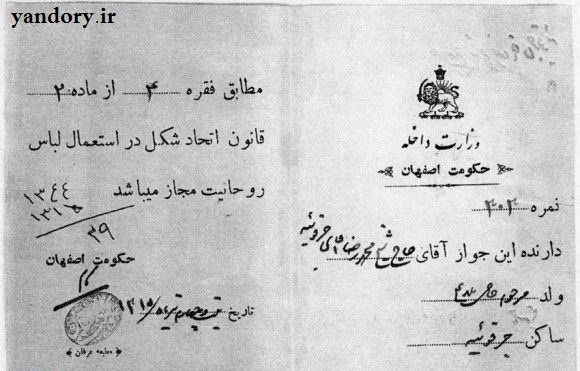 yandory.ir
وزارت داخله
حکومت اصفهان
نمره ۴۰۲
دارنده این جواز آقای حاج شیخ محمدرضا جرقوئیه
ولد مرحوم حاجی
ساکن جرقوئیه
مطابق فقره ۴ از ماده ۲
قانون اتحاد شکل در استعمال لباس
روحانیت مجاز میباشد
۱۳۴۴
۱۳۱۵
۲۹
حکومت اصفهان
تاریخ ۱۳۱۵
مطبعه عرفان